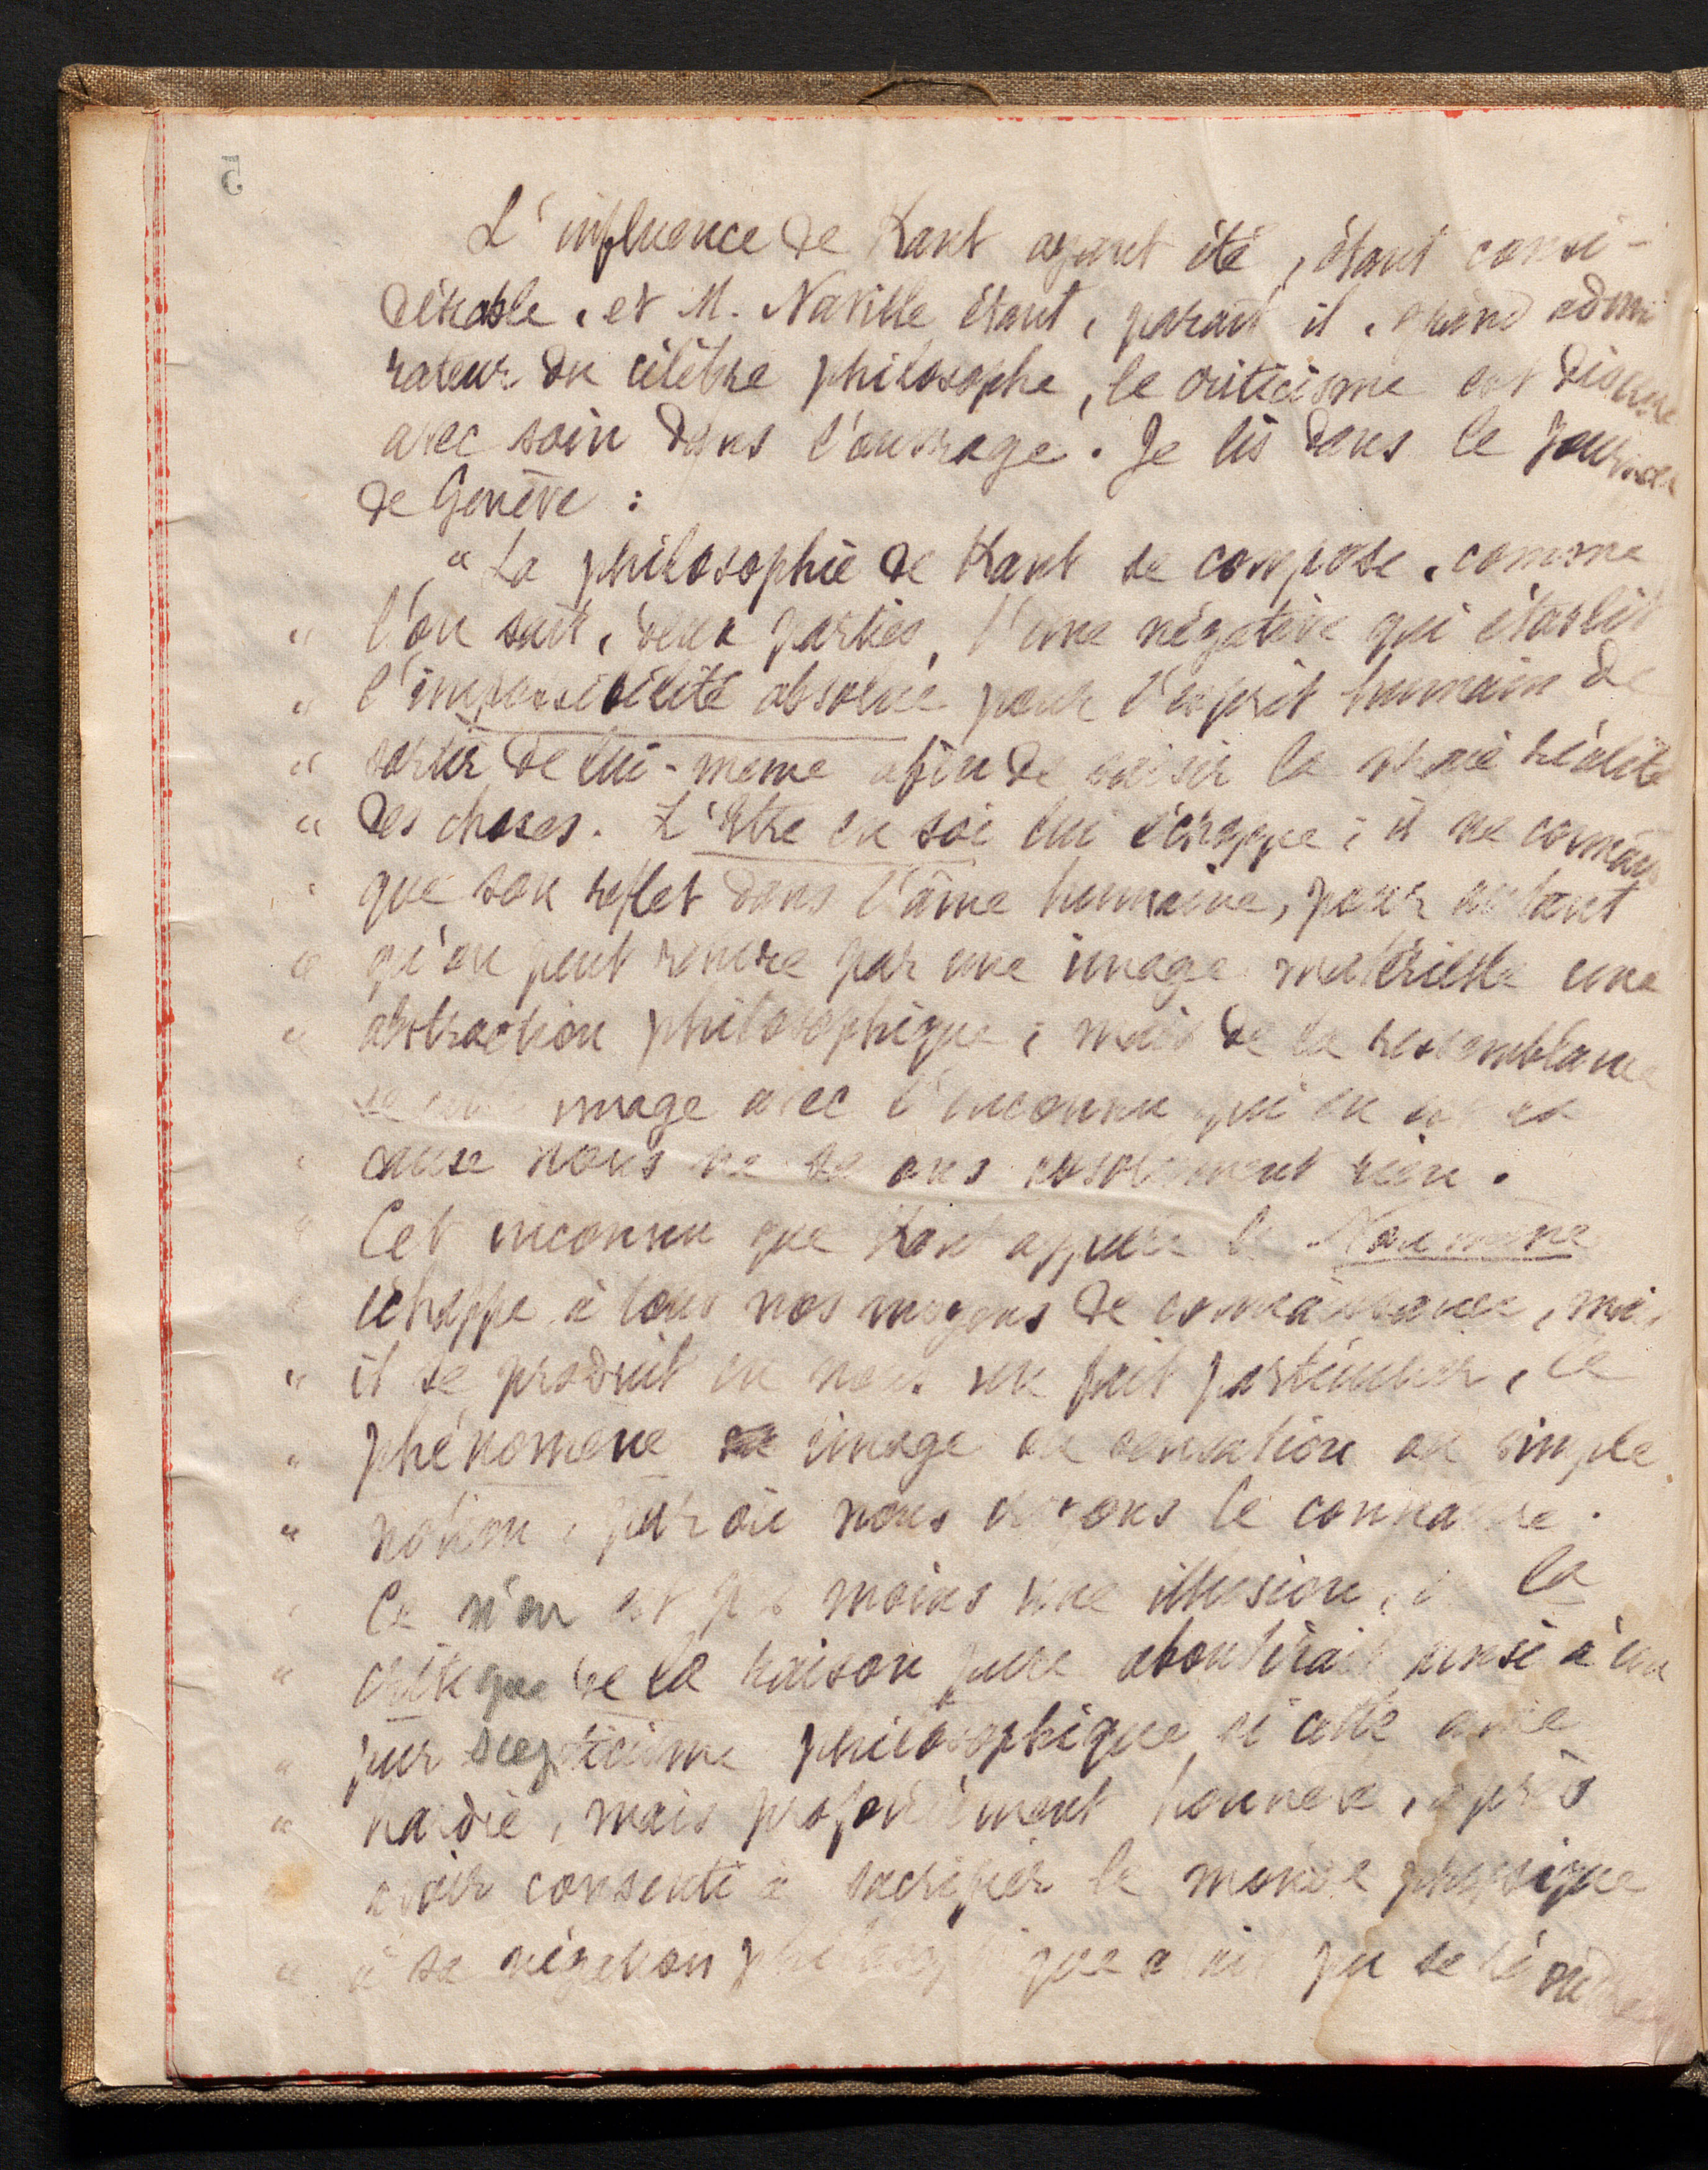 5
L'influence de Kant ayant été, étant consi-
dérable, et M. Naville étant, parait il, grand admi
rateur du célèbre philosophe, le criticisme est discuté
avec soin dans l'ouvrage. Je lis dans le Journal
de Genève :
" La philosophie de Kant se compose, comme
" l'on sait, deux parties, l'une négative qui établit
" l'impossibilité absolue pour l'esprit humain de
" sortir de lui-même afin de saisir la vraie réalité
" des choses. L'Etre en soi lui échappe ; il ne connait
" que son reflet dans l'âme humaine, pour autant
" qu'on peut rendre par une image matérielle une
" abstraction philosophique ; mais de la ressemblance
de cette image avec l'inconnu qui en est la
" cause nous ne savons absolument rien.
" Cet inconnu que Kant appelle le Noumène
" échappe à tous nos moyens de connaissance, mais
" il se produit en nous un fait particulier, le
" phénomène image ou sensation ou simple
" notion, par où nous croyons le connaitre.
" Ce n'en est pas moins une illusion, et la
" critique de la raison pure aboutirait ainsi à un
" pur scepticisme philosophique si cette âme
" hardie, mais profondément honnête, après
" avoir consenti à sacrifier le monde physique
" à sa négation philosophique avait pu se résoudre